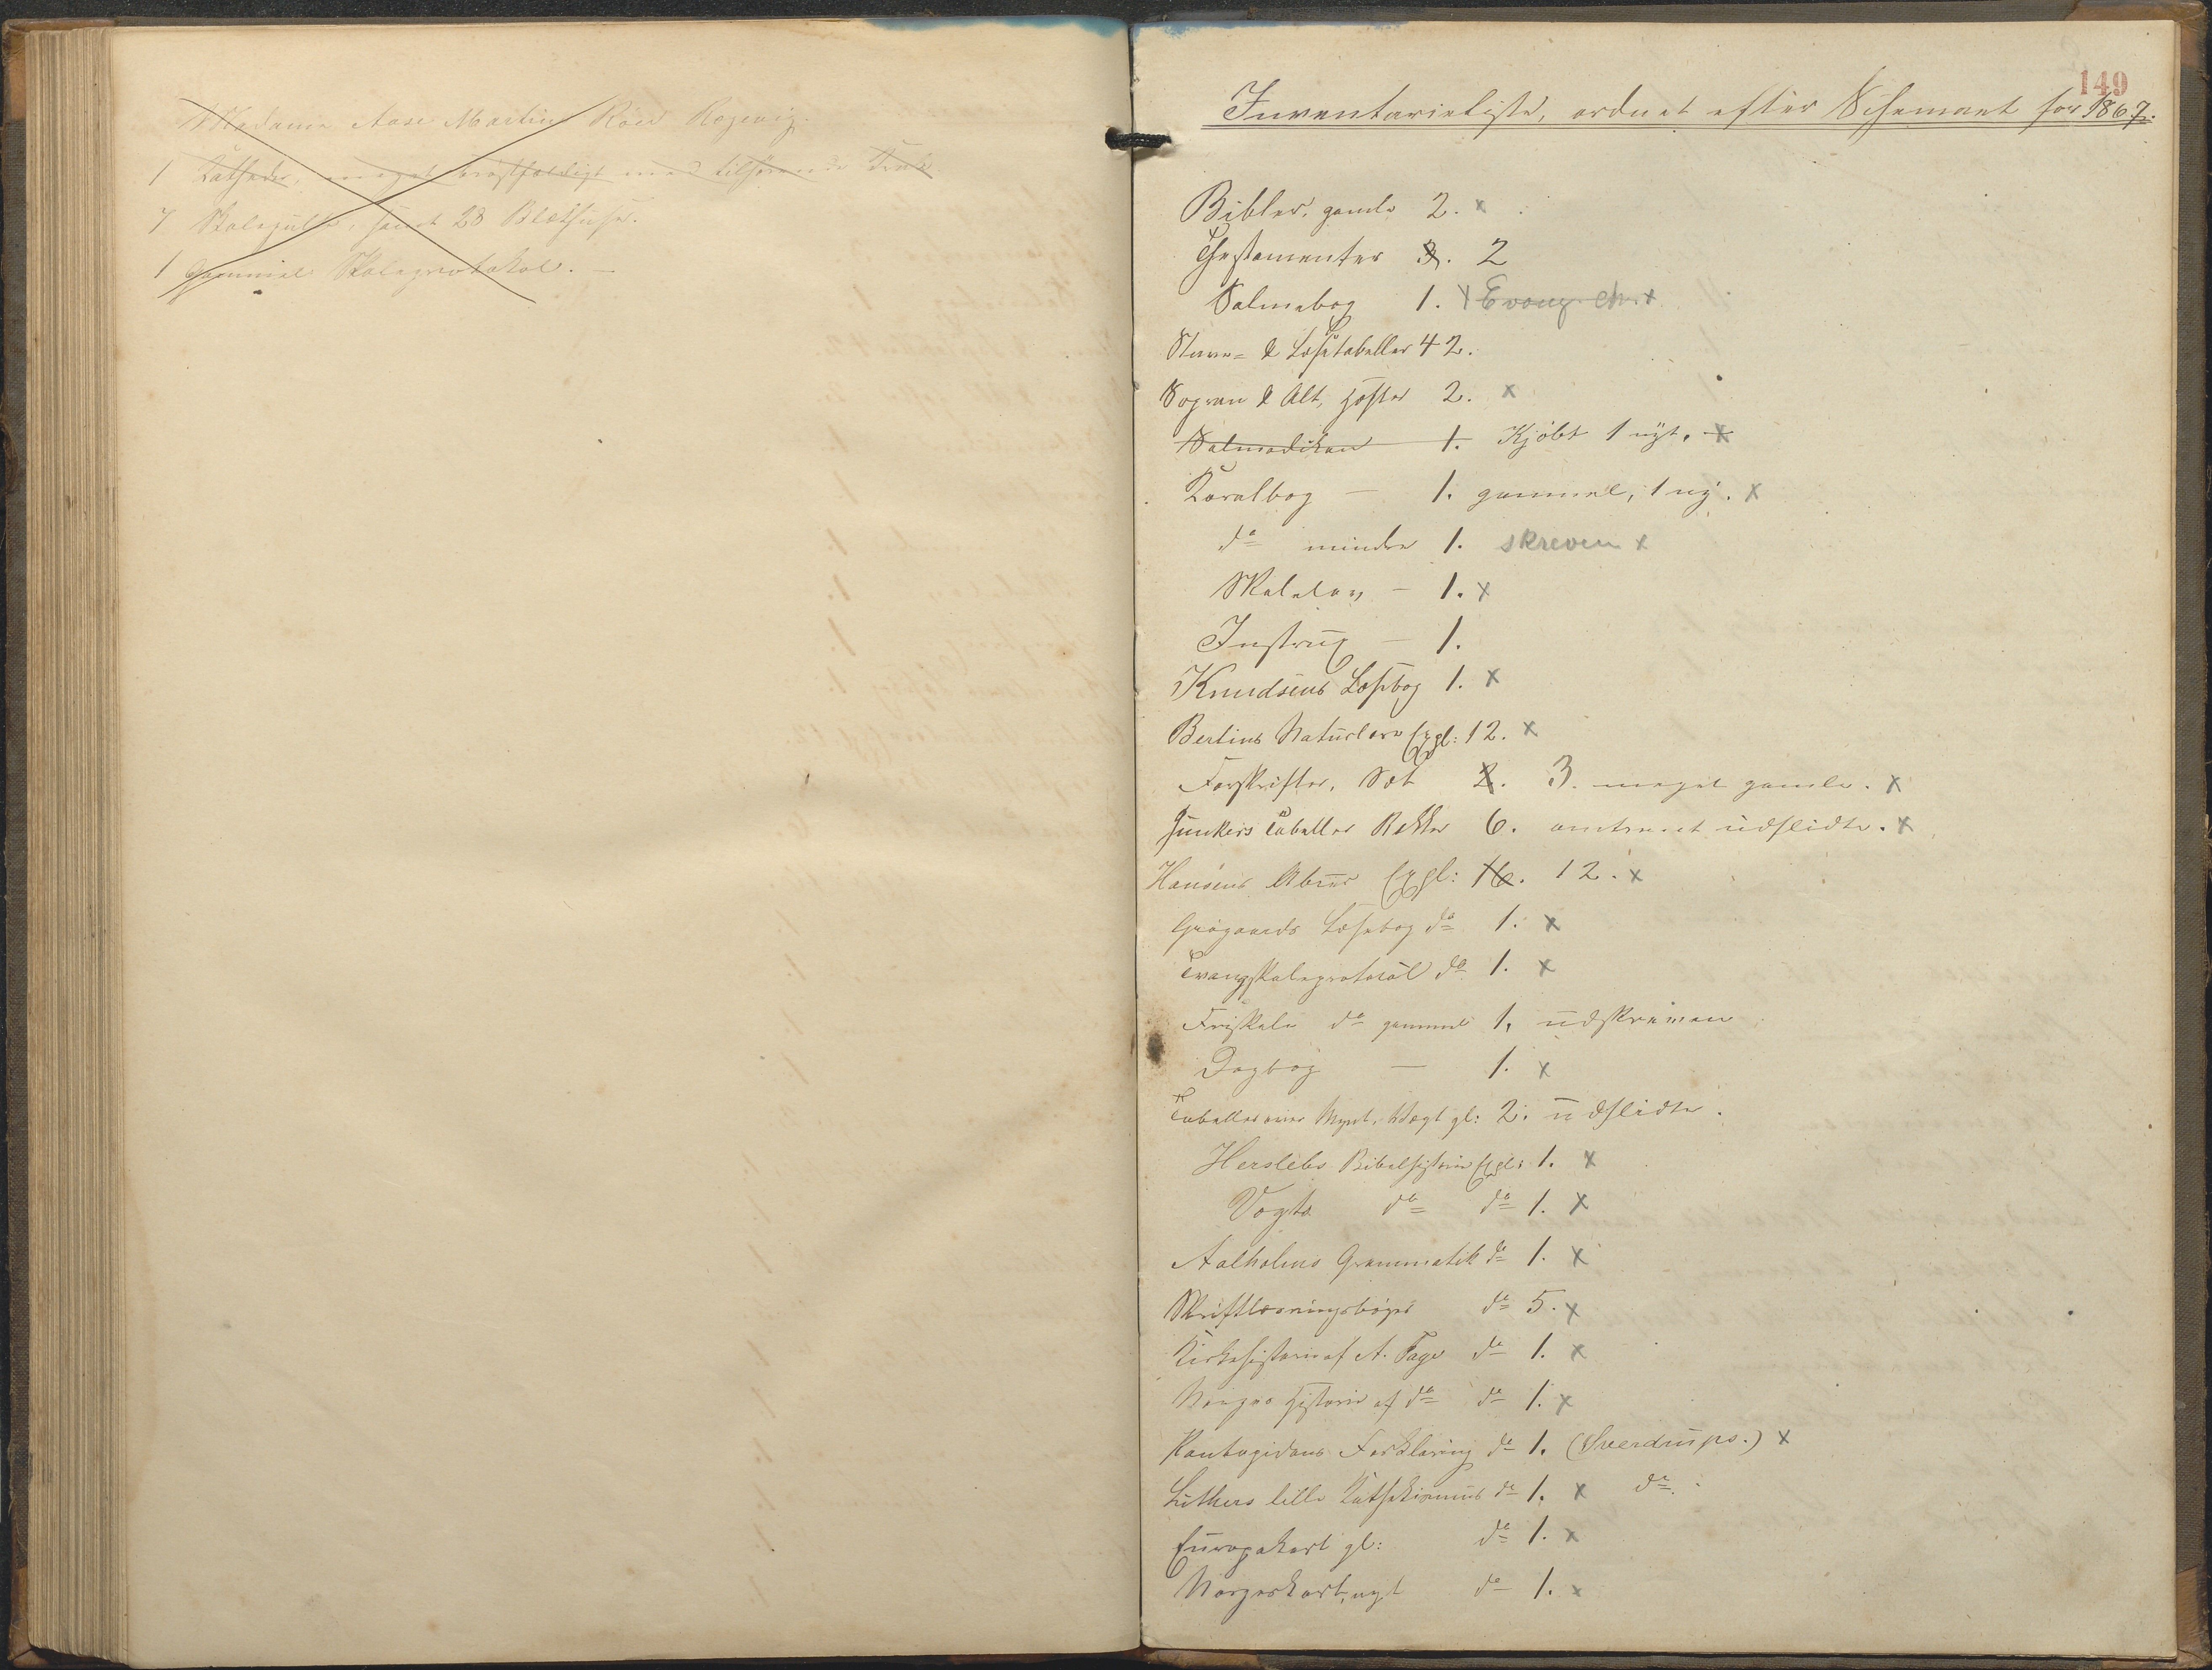 Madame Aase Martine Röed Ragevig.
1 Katheder, meget brøstfældigt med tilhørende Krak
7 Skolepulte, samt 28 Blækhuse.
1 Gammel Skoleprotokol. —
149
Inventarieliste, ordnet efter Schemaet for 1867.
Bibler, gamle 2. x
Thestamenter 3. 2
Salmebog 1. x Evang. Chr. x
Stave= & Læsetabeller 42.
Sopran & Alt, Hefter 2. x
Salmodikon 1. Kjöbt 1 nyt. x
Koralbog — 1. gammel, 1 ny. x
do mindre 1. skreven x
Skolelov — 1. x
Instrux — 1.
Knudsens Læsebog 1. x
Berlins Naturlære Expl: 12. x
Forskrifter, Sæt 2. 3. meget gamle. x
Junkers Tabeller Rekker 6. omtrent udslidte. x
Hansens Abcer Expl: 16. 12. x
Grögaards Læsebog do 1. x
Tvangskoleprotocol do 1. x
Friskole do gammel 1, udskreven
Dagbog — 1. x
Tabeller over Mynt, Vægt gl: 2. udslidte.
Herslebs Bibelhistorie Expl: 1. x
Vogts do do 1. x
Aalholms Grammatik do 1. x
Skriftlæsningsbøger do 5. x
Kirkehistorie af A. Faye do 1. x
Norges Historie af do do 1. x
Pontopidans Forklaring do 1. (Sverdrups.) x
Luthers lille Kathekismus do 1. x do.
Europakart gl: do 1. x
Norgeskart, nyt do 1. x